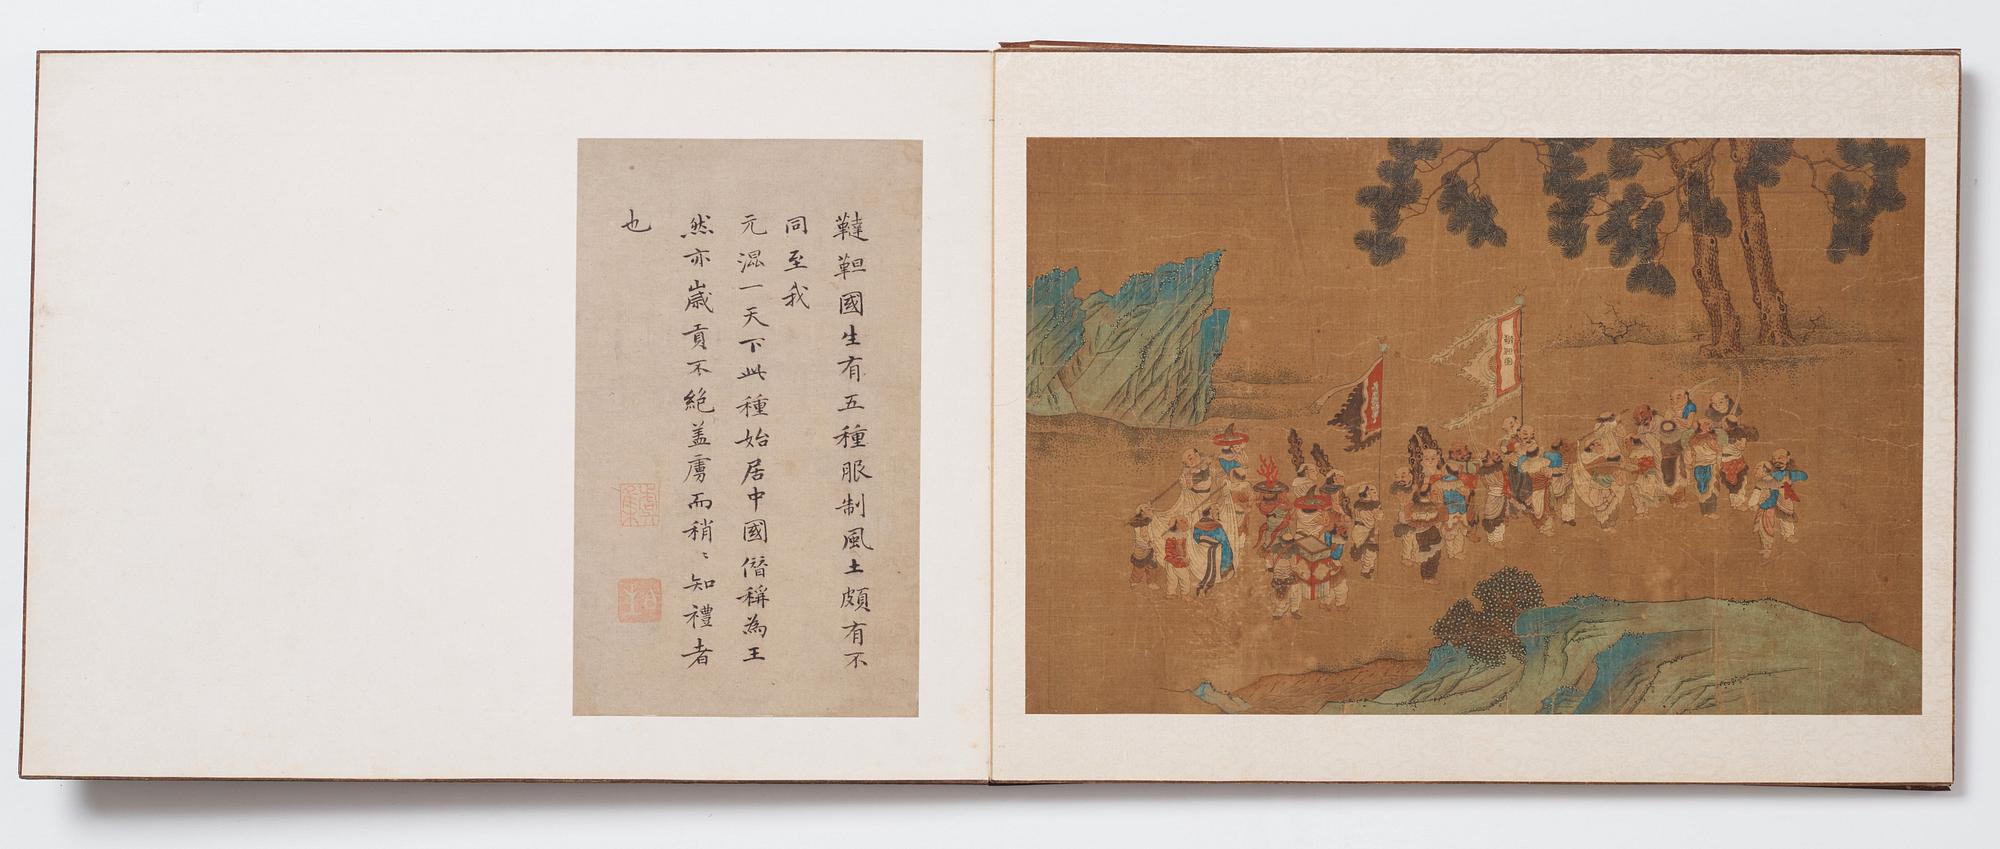 韃靼國生有五種服制風土頗有不
同至我
元混一天下此種始居中國僭稱為王
然亦歲貢不絕盖虜而稍〻知禮者
也
虞集
韃靼國